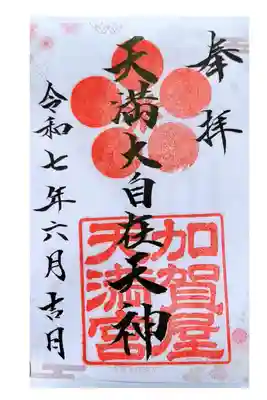 奉拝
天満大自在天神
加賀屋天満宮
令和七年六月吉日